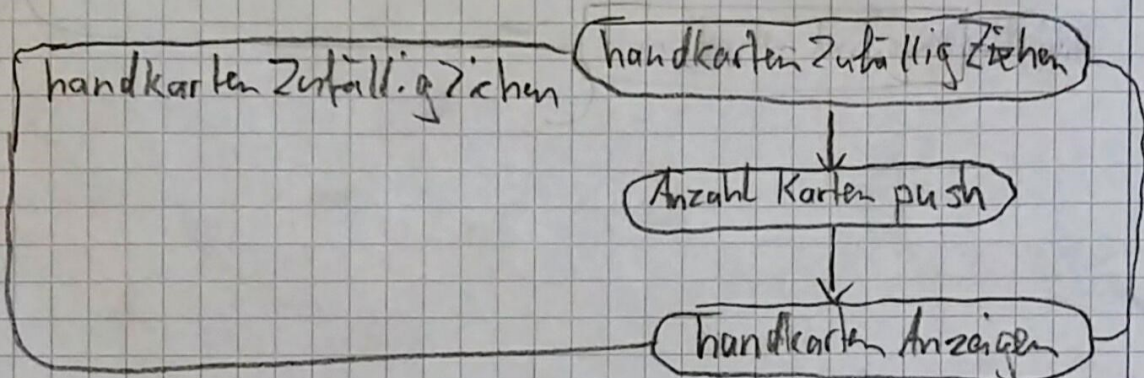 handkarten Zufällig Ziehen
handkarten Zufällig Ziehen
Anzahl Karten push
handkarten Anzeigen